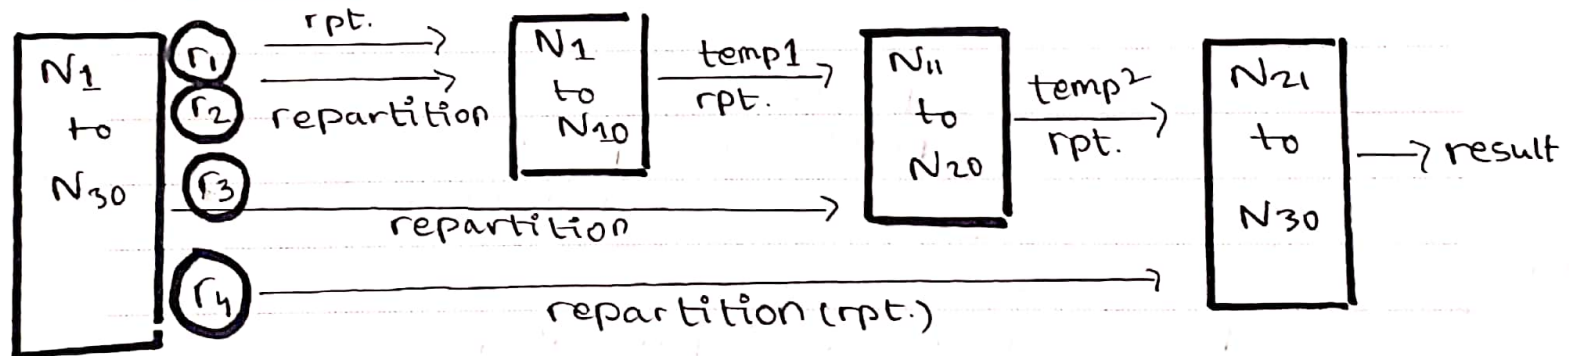 N1
to
N30
r1
r2
r3
r4
rpt.
repartition
N1
to
N10
temp1
rpt.
N11
to
N20
temp2
rpt.
N21
to
N30
result
repartition
repartition (rpt.)